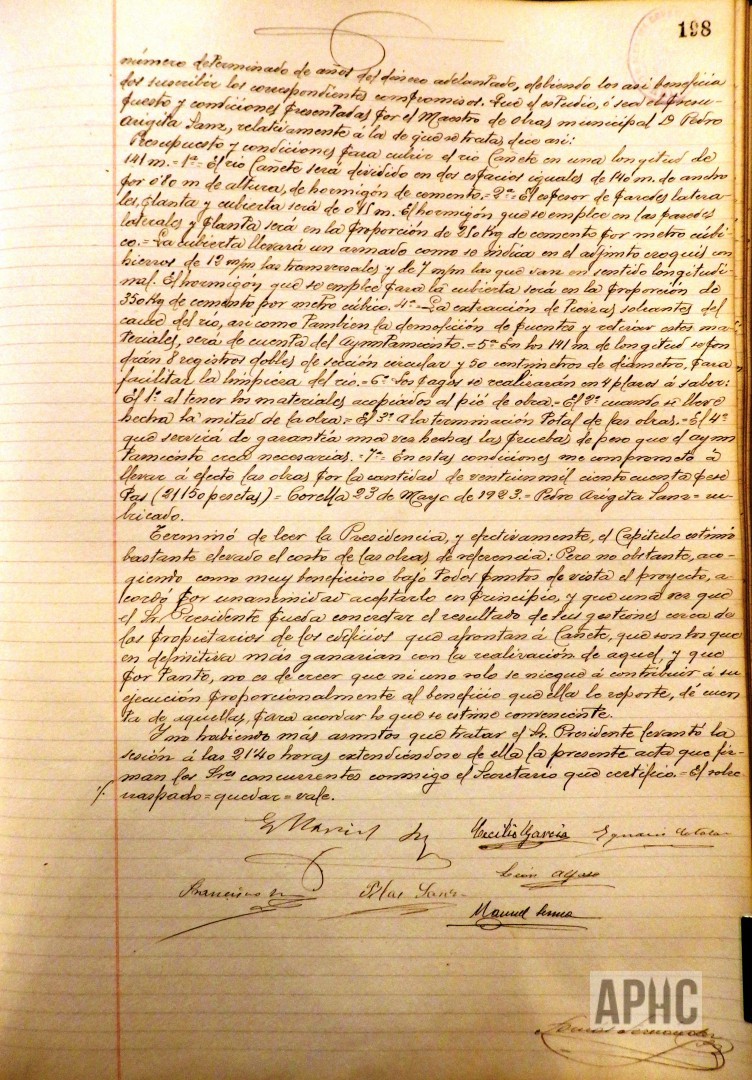 198
número determinado de años del dinero adelantado, debiendo los así beneficia
dos suscribir los correspondientes compromisos. Que el estudio, ó sea el presu-
puesto y condiciones presentadas por el Maestro de obras municipal D Pedro
Arigita Sanz, relativamente á la de que se trata, dice así:
Presupuesto y condiciones para cubrir el río Cañete en una longitud de
141 m. = 1ª = El río Cañete será dividido en dos espacios iguales de 1'40 m. de ancho
por 0'80 m de altura, de hormigón de cemento. = 2ª = El espesor de paredes latera-
les, planta y cubierta será de 0'15 m. El hormigón que se emplee en las paredes
laterales y planta será en la proporción de 250 Kg de cemento por metro cúbi-
co. = La cubierta llevará un armado como se indica en el adjunto croquis con
hierros de 12 m/m las transversales y de 7 m/m las que van en sentido longitudi-
nal. El hormigón que se emplee para la cubierta será en la proporción de
350 Kg de cemento por metro cúbico. 4ª = La extracción de tierras sobrantes del
cauce del río, así como tambien la demolición de puentes y retirar estos ma-
teriales, será de cuenta del Ayuntamiento. = 5ª = En los 141 m. de longitud se pon
drán 8 registros dobles de sección circular y 50 centímetros de diámetro, para
facilitar la limpieza del río. = 6ª = Los pagos se realizarán en 4 plazos á saber:
El 1º al tener los materiales acopiados al pié de obra. = El 2º cuando se lleve
hecha la mitad de la obra = El 3º á la terminación total de las obras. = El 4º
que servirá de garantía una vez hechas las pruebas de peso que el ayun
tamiento crea necesarias. = 7ª = En estas condiciones me comprometo á
llevar á efecto las obras por la cantidad de veintiun mil ciento cincuenta pese
tas (21150 pesetas) = Corella 23 de Mayo de 1923. = Pedro Arigita Sanz = ru-
bricado.
Terminó de leer la Presidencia, y efectivamente, el Capítulo estimó
bastante elevado el costo de las obras de referencia: Pero no obstante, aco-
giendo como muy beneficioso bajo todos puntos de vista el proyecto, a
cordó por unanimidad aceptarlo en principio, y que una vez que
el Sr. Presidente pueda concretar el resultado de sus gestiones cerca de
los propietarios de los edificios que afrontan á Cañete, que son los que
en definitiva más ganarian con la realización de aquel, y que
por tanto, no es de creer que ni uno solo se niegue á contribuir á su
ejecución proporcionalmente al beneficio que ella le reporte, dé cuen
ta de aquellas, para acordar lo que se estime conveniente.
Y no habiendo más asuntos que tratar el Sr. Presidente levantó la
sesión á las 21'40 horas extendiéndose de ella la presente acta que fir-
man los Sres concurrentes conmigo el Secretario que certifico. = El sobre
raspado = quedar = vale.
Cecilio Garcia
León Alfaro
Francisco
Blas Sanz
Manuel
APHC